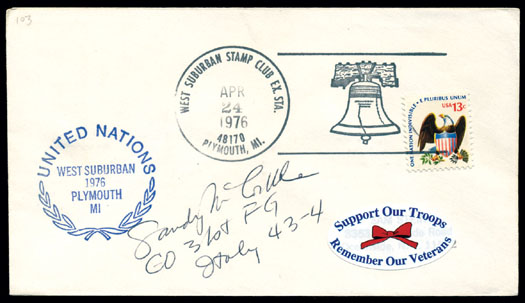 103
WEST SUBURBAN STAMP CLUB EX. STA.
APR
24
1976
48170
PLYMOUTH, MI.
ONE NATION INDIVISIBLE • E PLURIBUS UNUM
USA 13c
UNITED NATIONS
WEST SUBURBAN
1976
PLYMOUTH
MI
Sandy McCorkle
CO 31st FG
Italy 43-4
Support Our Troops
Remember Our Veterans